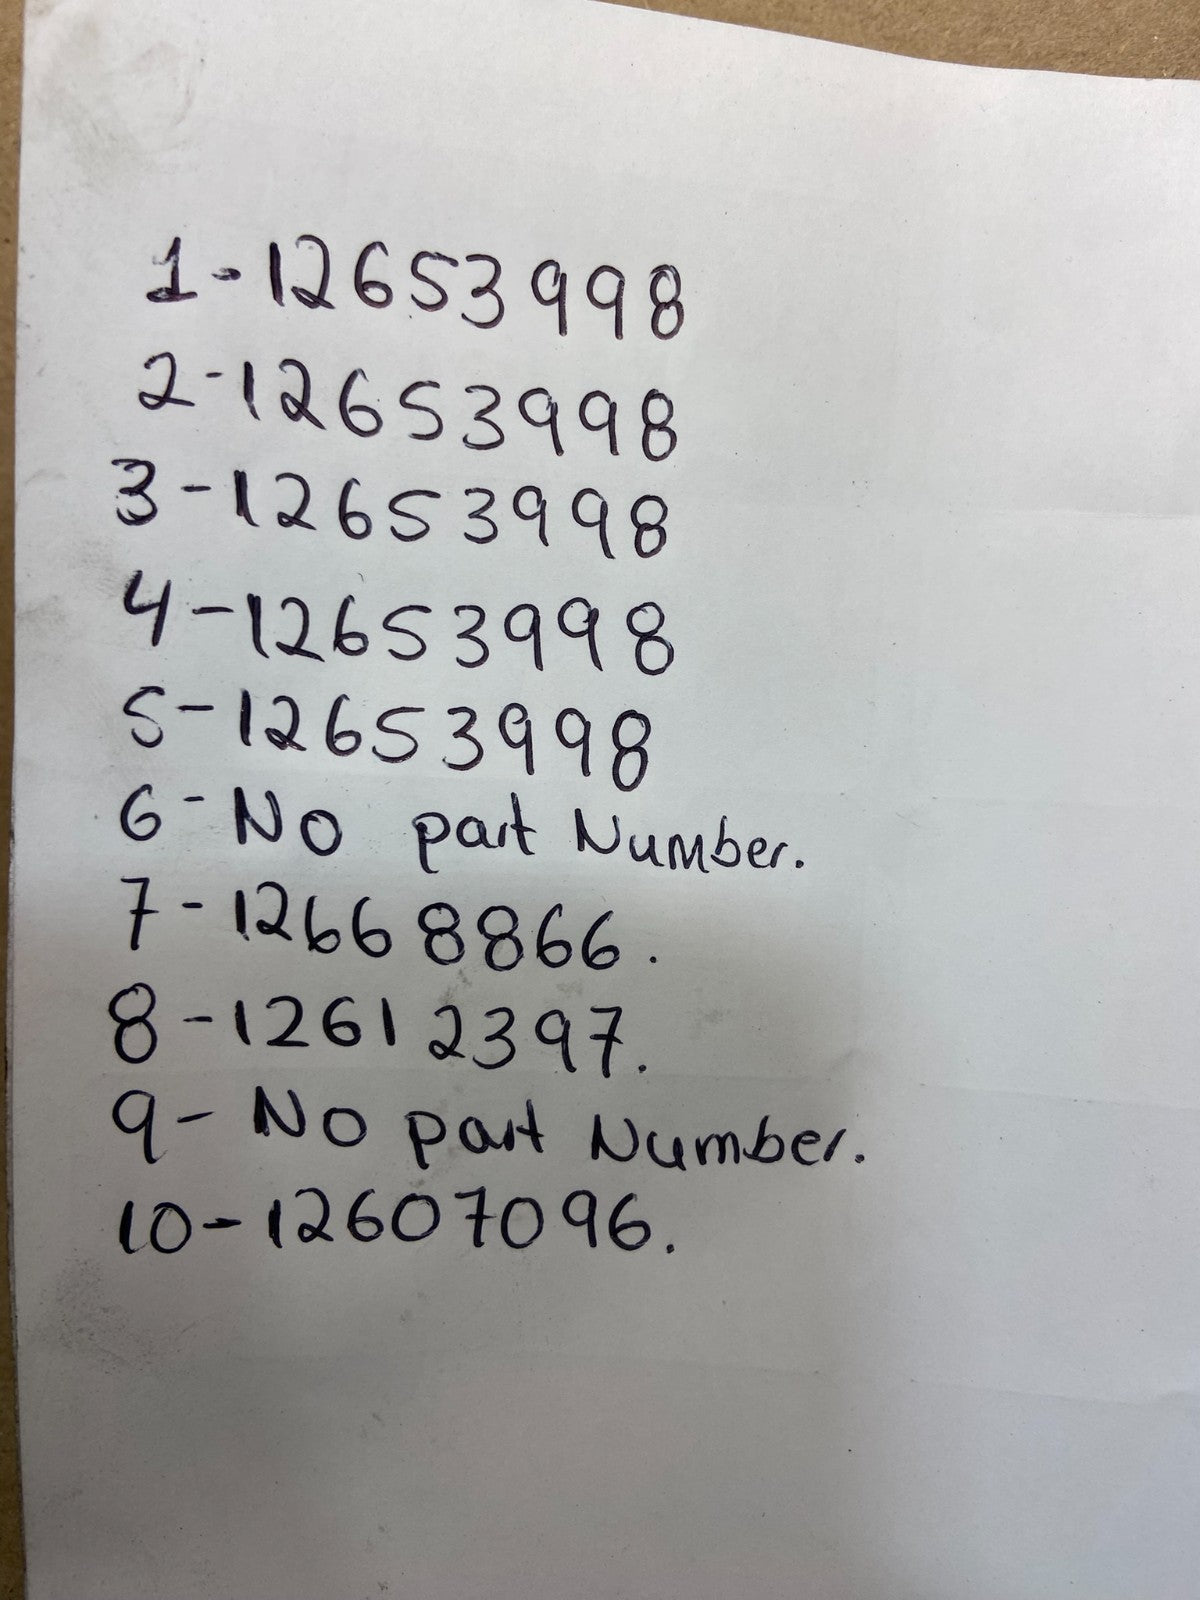 1-12653998
2-12653998
3-12653998
4-12653998
5-12653998
6-No part Number.
7-12668866.
8-12612397.
9-No part Number.
10-12607096.